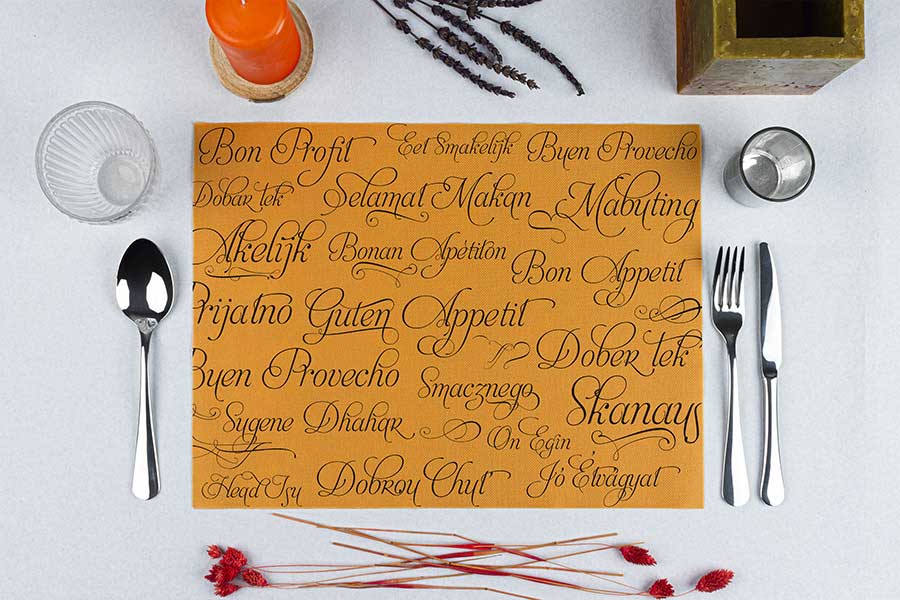 Bon Profit Eet Smakelijk Buen Provecho
Dobar tek Selamat Makan Mabuting
Akelijk Bonan Apétiton
Bon Appetit
Prijatno Guten Appetit
Dober tek
Buen Provecho
Smacznego
Skanaus
Sugene Dhahar
On Egin
Dobrou Chuť Jó Étvágyat